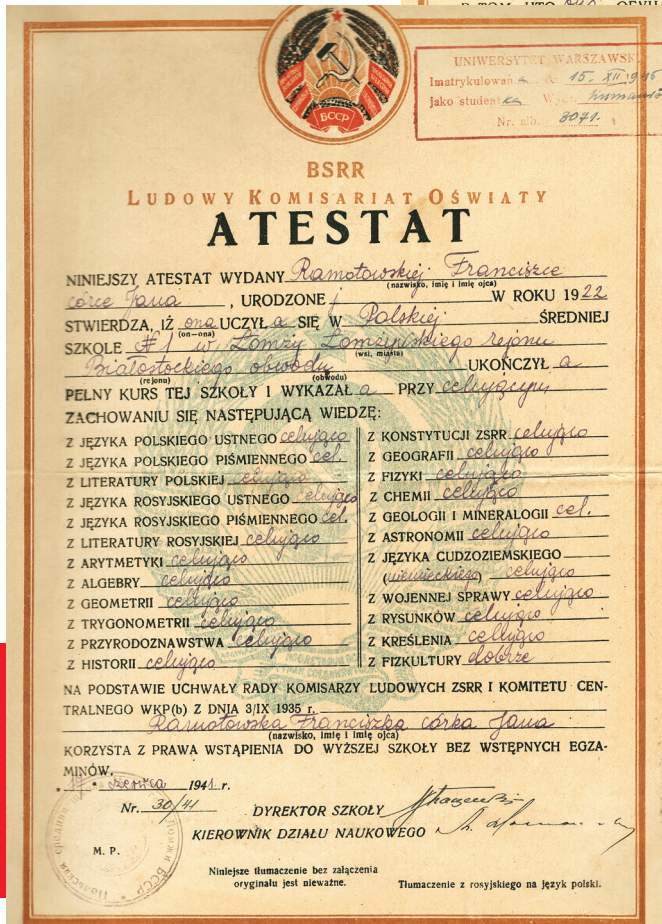 UNIWERSYTET WARSZAWSK
Imatrykulowan a d. 15. XII 19
jako student ka Wy
Nr. alb. 8071.
БССР
BSRR
LUDOWY KOMISARIAT OŚWIATY
ATESTAT
NINIEJSZY ATESTAT WYDANY Ramotowskiej Franciszce
(nazwisko, imię i imię ojca)
córce Jana, URODZONE j W ROKU 1922
STWIERDZA, IŻ ona UCZYŁ a SIĘ W Polskiej ŚREDNIEJ
(on—ona)
SZKOLE # 1 w Łomży Łomżyńskiego rejonu
(wsi, miasta)
Białostockiego obwodu UKOŃCZYŁ a
(rejonu) (obwodu)
PEŁNY KURS TEJ SZKOŁY I WYKAZAŁ a PRZY celującym
ZACHOWANIU SIĘ NASTĘPUJĄCĄ WIEDZĘ:
Z JĘZYKA POLSKIEGO USTNEGO celująco
Z JĘZYKA POLSKIEGO PIŚMIENNEGO cel.
Z LITERATURY POLSKIEJ celująco
Z JĘZYKA ROSYJSKIEGO USTNEGO celująco
Z JĘZYKA ROSYJSKIEGO PIŚMIENNEGO cel.
Z LITERATURY ROSYJSKIEJ celująco
Z ARYTMETYKI celująco
Z ALGEBRY celująco
Z GEOMETRII celująco
Z TRYGONOMETRII celująco
Z PRZYRODOZNAWSTWA celująco
Z HISTORII celująco
Z KONSTYTUCJI ZSRR celująco
Z GEOGRAFII celująco
Z FIZYKI celująco
Z CHEMII celująco
Z GEOLOGII I MINERALOGII cel.
Z ASTRONOMII celująco
Z JĘZYKA CUDZOZIEMSKIEGO
(niemieckiego) celująco
Z WOJENNEJ SPRAWY celująco
Z RYSUNKÓW celująco
Z KREŚLENIA celująco
Z FIZKULTURY dobrze
NA PODSTAWIE UCHWAŁY RADY KOMISARZY LUDOWYCH ZSRR I KOMITETU CEN-
TRALNEGO WKP(b) Z DNIA 3/IX 1935 r.
Ramotowska Franciszka córka Jana
(nazwisko, imię i imię ojca)
KORZYSTA Z PRAWA WSTĄPIENIA DO WYŻSZEJ SZKOŁY BEZ WSTĘPNYCH EGZA-
MINÓW.
„17" czerwca 1941 r.
Nr. 30/41
DYREKTOR SZKOŁY
KIEROWNIK DZIAŁU NAUKOWEGO
M. P.
Niniejsze tłumaczenie bez załączenia
oryginału jest nieważne.
Tłumaczenie z rosyjskiego na język polski.